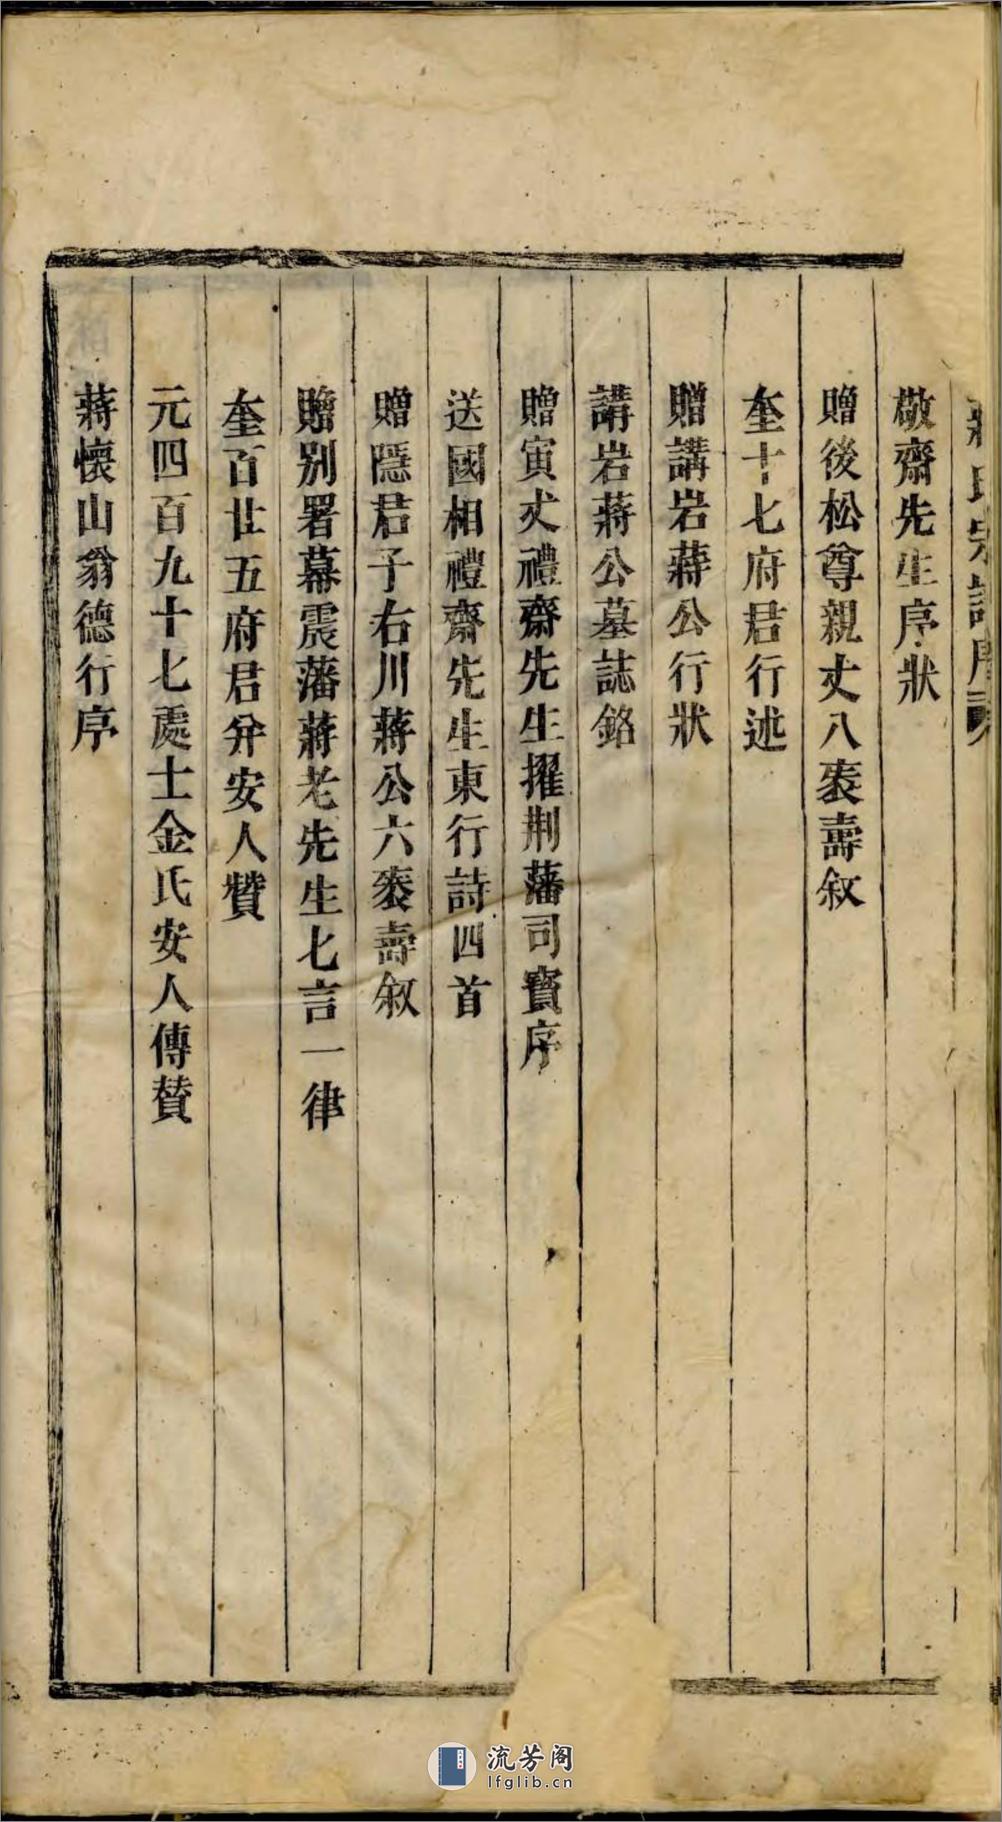 敬齋先生序狀
贈後松尊親丈八袠壽叙
奎十七府君行述
贈講岩蔣公行狀
講岩蔣公墓誌銘
贈寅丈禮齋先生擢荆藩司寶序
送國相禮齋先生東行詩四首
贈隱君子右川蔣公六袠壽叙
贈别署幕震藩蔣老先生七言一律
奎百廿五府君并安人贊
元四百九十七處士金氏安人傳贊
蔣懷山翁德行序
流芳阁
lfglib.cn